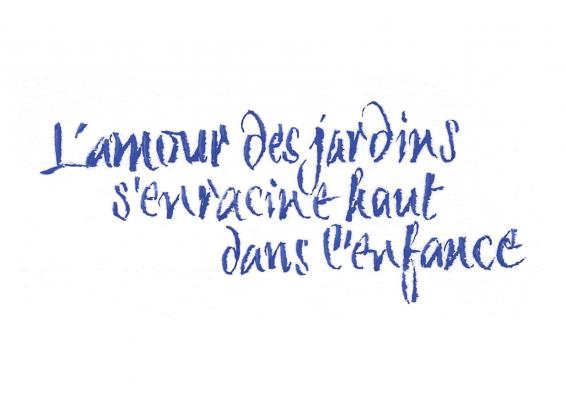 L'amour des jardins
s'enracine haut
dans l'enfance